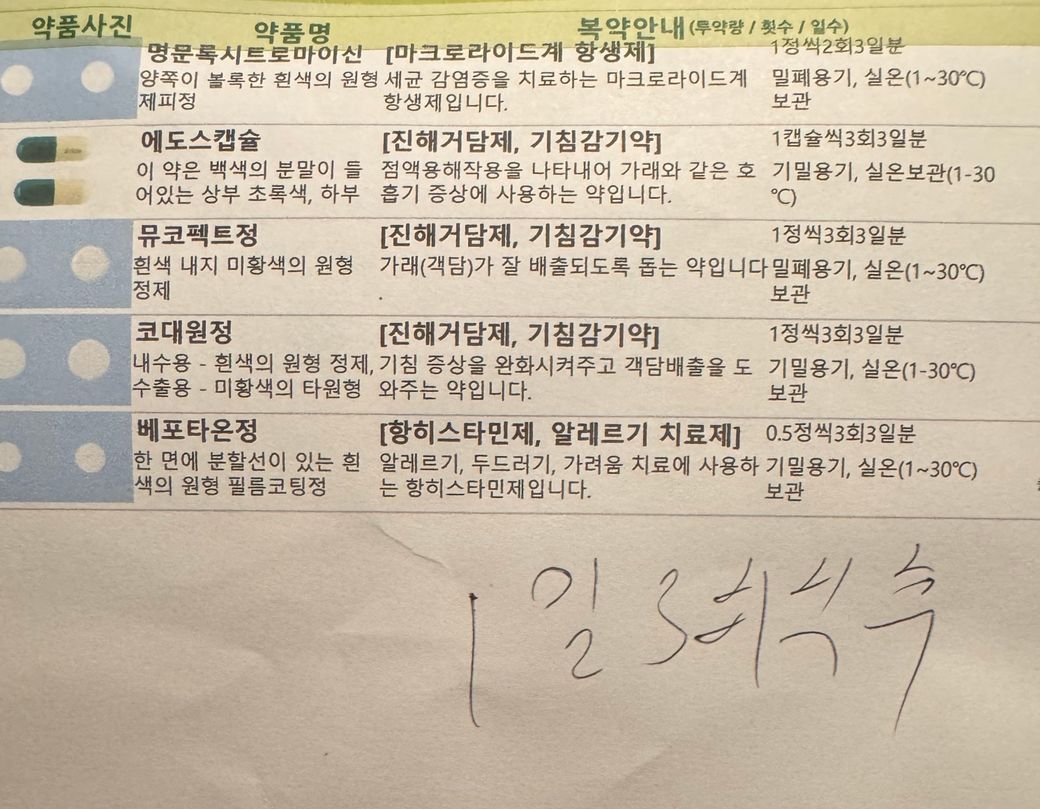 약품사진 약품명 복약안내(투약량 / 횟수 / 일수)
명문록시트로마이신 [마크로라이드계 항생제] 1정씩2회3일분
양쪽이 볼록한 흰색의 원형 세균 감염증을 치료하는 마크로라이드계 밀폐용기, 실온(1~30℃)
제피정 항생제입니다. 보관
에도스캡슐 [진해거담제, 기침감기약] 1캡슐씩3회3일분
이 약은 백색의 분말이 들 점액용해작용을 나타내어 가래와 같은 호 기밀용기, 실온보관(1-30
어있는 상부 초록색, 하부 흡기 증상에 사용하는 약입니다. ℃)
뮤코펙트정 [진해거담제, 기침감기약] 1정씩3회3일분
흰색 내지 미황색의 원형 가래(객담)가 잘 배출되도록 돕는 약입니다 밀폐용기, 실온(1~30℃)
정제 . 보관
코대원정 [진해거담제, 기침감기약] 1정씩3회3일분
내수용 - 흰색의 원형 정제, 기침 증상을 완화시켜주고 객담배출을 도 기밀용기, 실온(1-30℃)
수출용 - 미황색의 타원형 와주는 약입니다. 보관
베포타온정 [항히스타민제, 알레르기 치료제] 0.5정씩3회3일분
한 면에 분할선이 있는 흰 알레르기, 두드러기, 가려움 치료에 사용하 기밀용기, 실온(1~30℃)
색의 원형 필름코팅정 는 항히스타민제입니다. 보관
1일 3회 식후